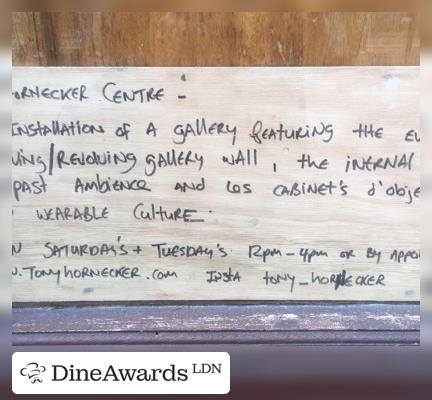 ORNECKER CENTRE -
INSTALLATION OF A GALLERY FEATURING THE EV
VING/REVOLVING GALLERY WALL, THE INERNAL
PAST AMBIENCE AND LES CABINET'S D'OBJE
WEARABLE CULTURE.
N SATURDAY'S + TUESDAY'S 12pm-4pm OR BY APPO
W.TONYHORNECKER.COM INSTA TONY_HORNECKER
DineAwards LDN